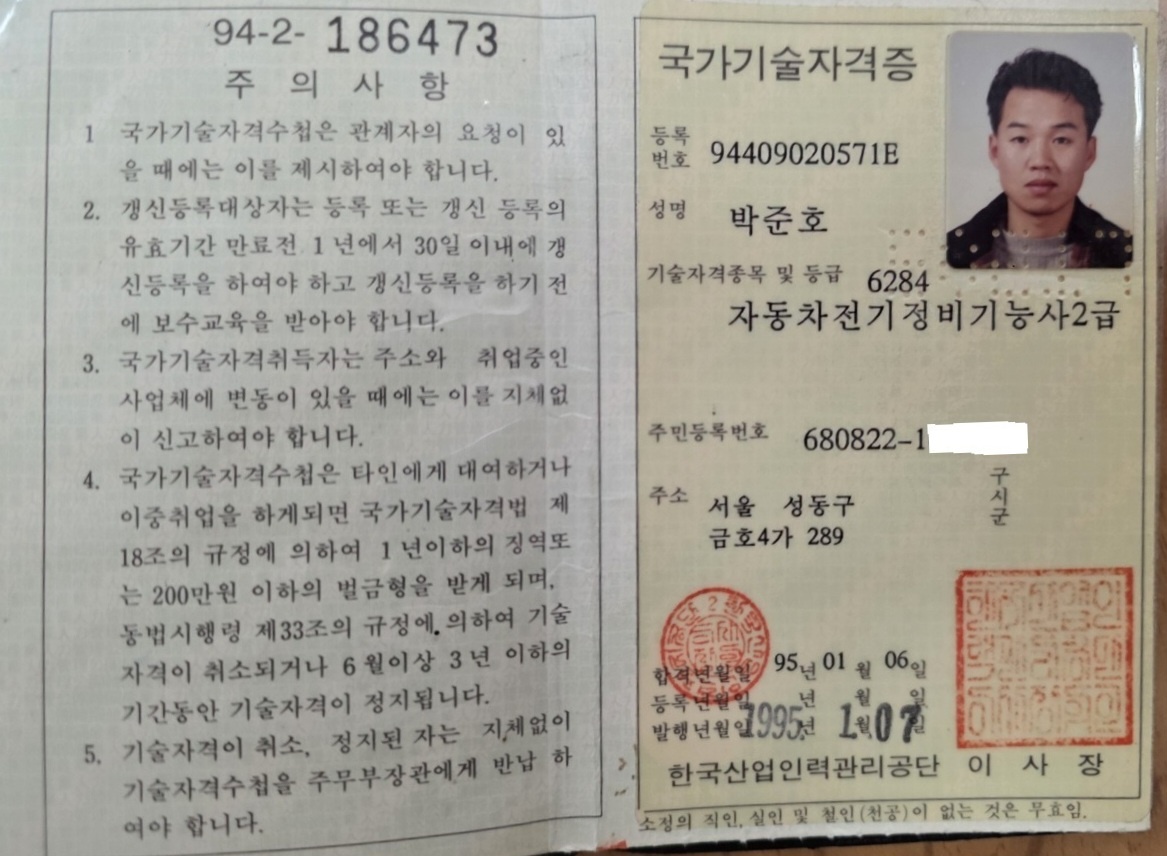 94-2- 186473
주 의 사 항
1 국가기술자격수첩은 관계자의 요청이 있
을 때에는 이를 제시하여야 합니다.
2. 갱신등록대상자는 등록 또는 갱신 등록의
유효기간 만료전 1년에서 30일 이내에 갱
신등록을 하여야 하고 갱신등록을 하기 전
에 보수교육을 받아야 합니다.
3. 국가기술자격취득자는 주소와 취업중인
사업체에 변동이 있을 때에는 이를 지체없
이 신고하여야 합니다.
4. 국가기술자격수첩은 타인에게 대여하거나
이중취업을 하게되면 국가기술자격법 제
18조의 규정에 의하여 1년이하의 징역또
는 200만원 이하의 벌금형을 받게 되며,
동법시행령 제33조의 규정에 의하여 기술
자격이 취소되거나 6월이상 3년 이하의
기간동안 기술자격이 정지됩니다.
5. 기술자격이 취소, 정지된 자는 지체없이
기술자격수첩을 주무부장관에게 반납 하
여야 합니다.
국가기술자격증
등록번호 94409020571E
성명 박준호
기술자격종목 및 등급 6284
자동차전기정비기능사2급
주민등록번호 680822-1
주소 서울 성동구
구시군
금호4가 289
합격년월일 95년 01월 06일
등록년월일 년 월 일
발행년월일 1995년 1.월 07일
한국산업인력관리공단 이 사 장
소정의 직인, 실인 및 철인(천공)이 없는 것은 무효임.